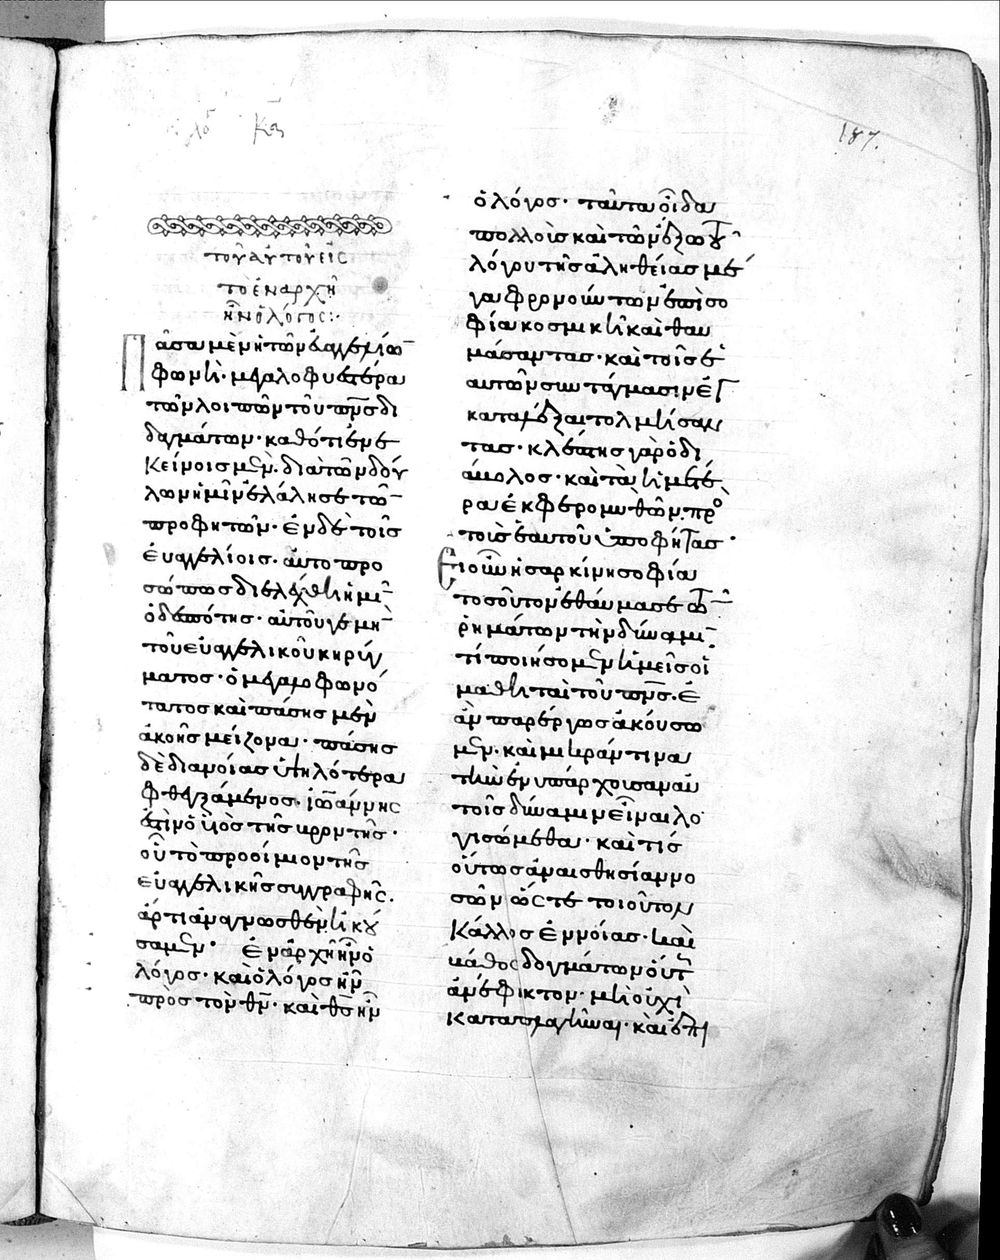 λο^γ κα
187.
τοῦ αὐτοῦ εἰς
τὸ ἐν ἀρχῆ
ἦν ὁ λόγος:·
Πᾶσα μὲν ἡ τῶν εὐαγγελίω
φωνὴ· μεγαλοφυεστέρα
τῶν λοιπῶν τοῦ πν̅ς δι
δαγμάτων· καθότι ἐν ἐ
κείνοις μὲν. διὰ τῶν δού
λων ἡμῖν ἐλάλησε τῶ
προφητῶν· ἐν δὲ τοῖς
εὐαγγελίοις. αὐτοπρο
σώπως διελέχθη ἡμῖ
ὁ δεσπότης· αὐτοῦ γε μὴ
τοῦ εὐαγγελικοῦ κηρύγ
ματος· ὁ μεγαλοφωνό
τατος καὶ πάσης μὲν
ἀκοῆς μείζονα· πάσης
δὲ διανοίας ὑψηλότερα
φθεγξάμενος. ἰωάννης
ἐστὶν ὁ ὑιὸς τῆς βροντῆς·
οὗ τὸ προοίμιον τῆς
εὐαγγελικῆς συγγραφῆς.
ἀρτι ἀναγνωσθὲν ἠκού
σαμεν· ἐν ἀρχῆ ἦν ὁ
λόγος· καὶ ὁ λόγος ἦν
πρὸς τὸν θ̅ν· καὶ θ̅ς ἦν
ὁ λόγος· ταῦτα οἶδα
πολλοὺς καὶ τῶν ἔξω τοῦ
λόγου τῆς ἀληθείας με
γα φρονούντων ἐπὶ σο
φία κοσμικῆ καὶ θαυ
μάσαντας· καὶ τοῖς ἑ
αυτῶν συντάγμασιν ἐγ
καταμίξαι τολμήσαν
τας· κλέπτης γὰρ ὁ δι
άβολος· καὶ τὰ ἡμέτε
ρα ἐκφέρομυθῶν. πρὸ
τοὺς ἑαυτοῦ ὑποφήτας·
Εἰ οὖν ἡ σαρκίνη σοφία
τοσοῦτον ἐθαύμασε τῶ
ρημάτων τὴν δύναμι.
τί ποιήσομεν ἡμεῖς οἱ
μαθηταὶ τοῦ πν̅ς. ἐ
ὰν παρέργως ἀκούσω
μεν. καὶ μικράν τινα
τὴν ἐνυπάρχουσαν αὐ
τοῖς δύναμιν εἶναι λο
γισώμεθα· καὶ τίς
οὕτως ἀναισθησίαν νο
σῶν ὥστε τοιοῦτον
κάλλος ἐννοίας· καὶ
βάθος δογμάτων οὕτ
ἀνέφικτον· μὴ οὐχὶ
καταπλαγῆναι· καὶ ἐπι